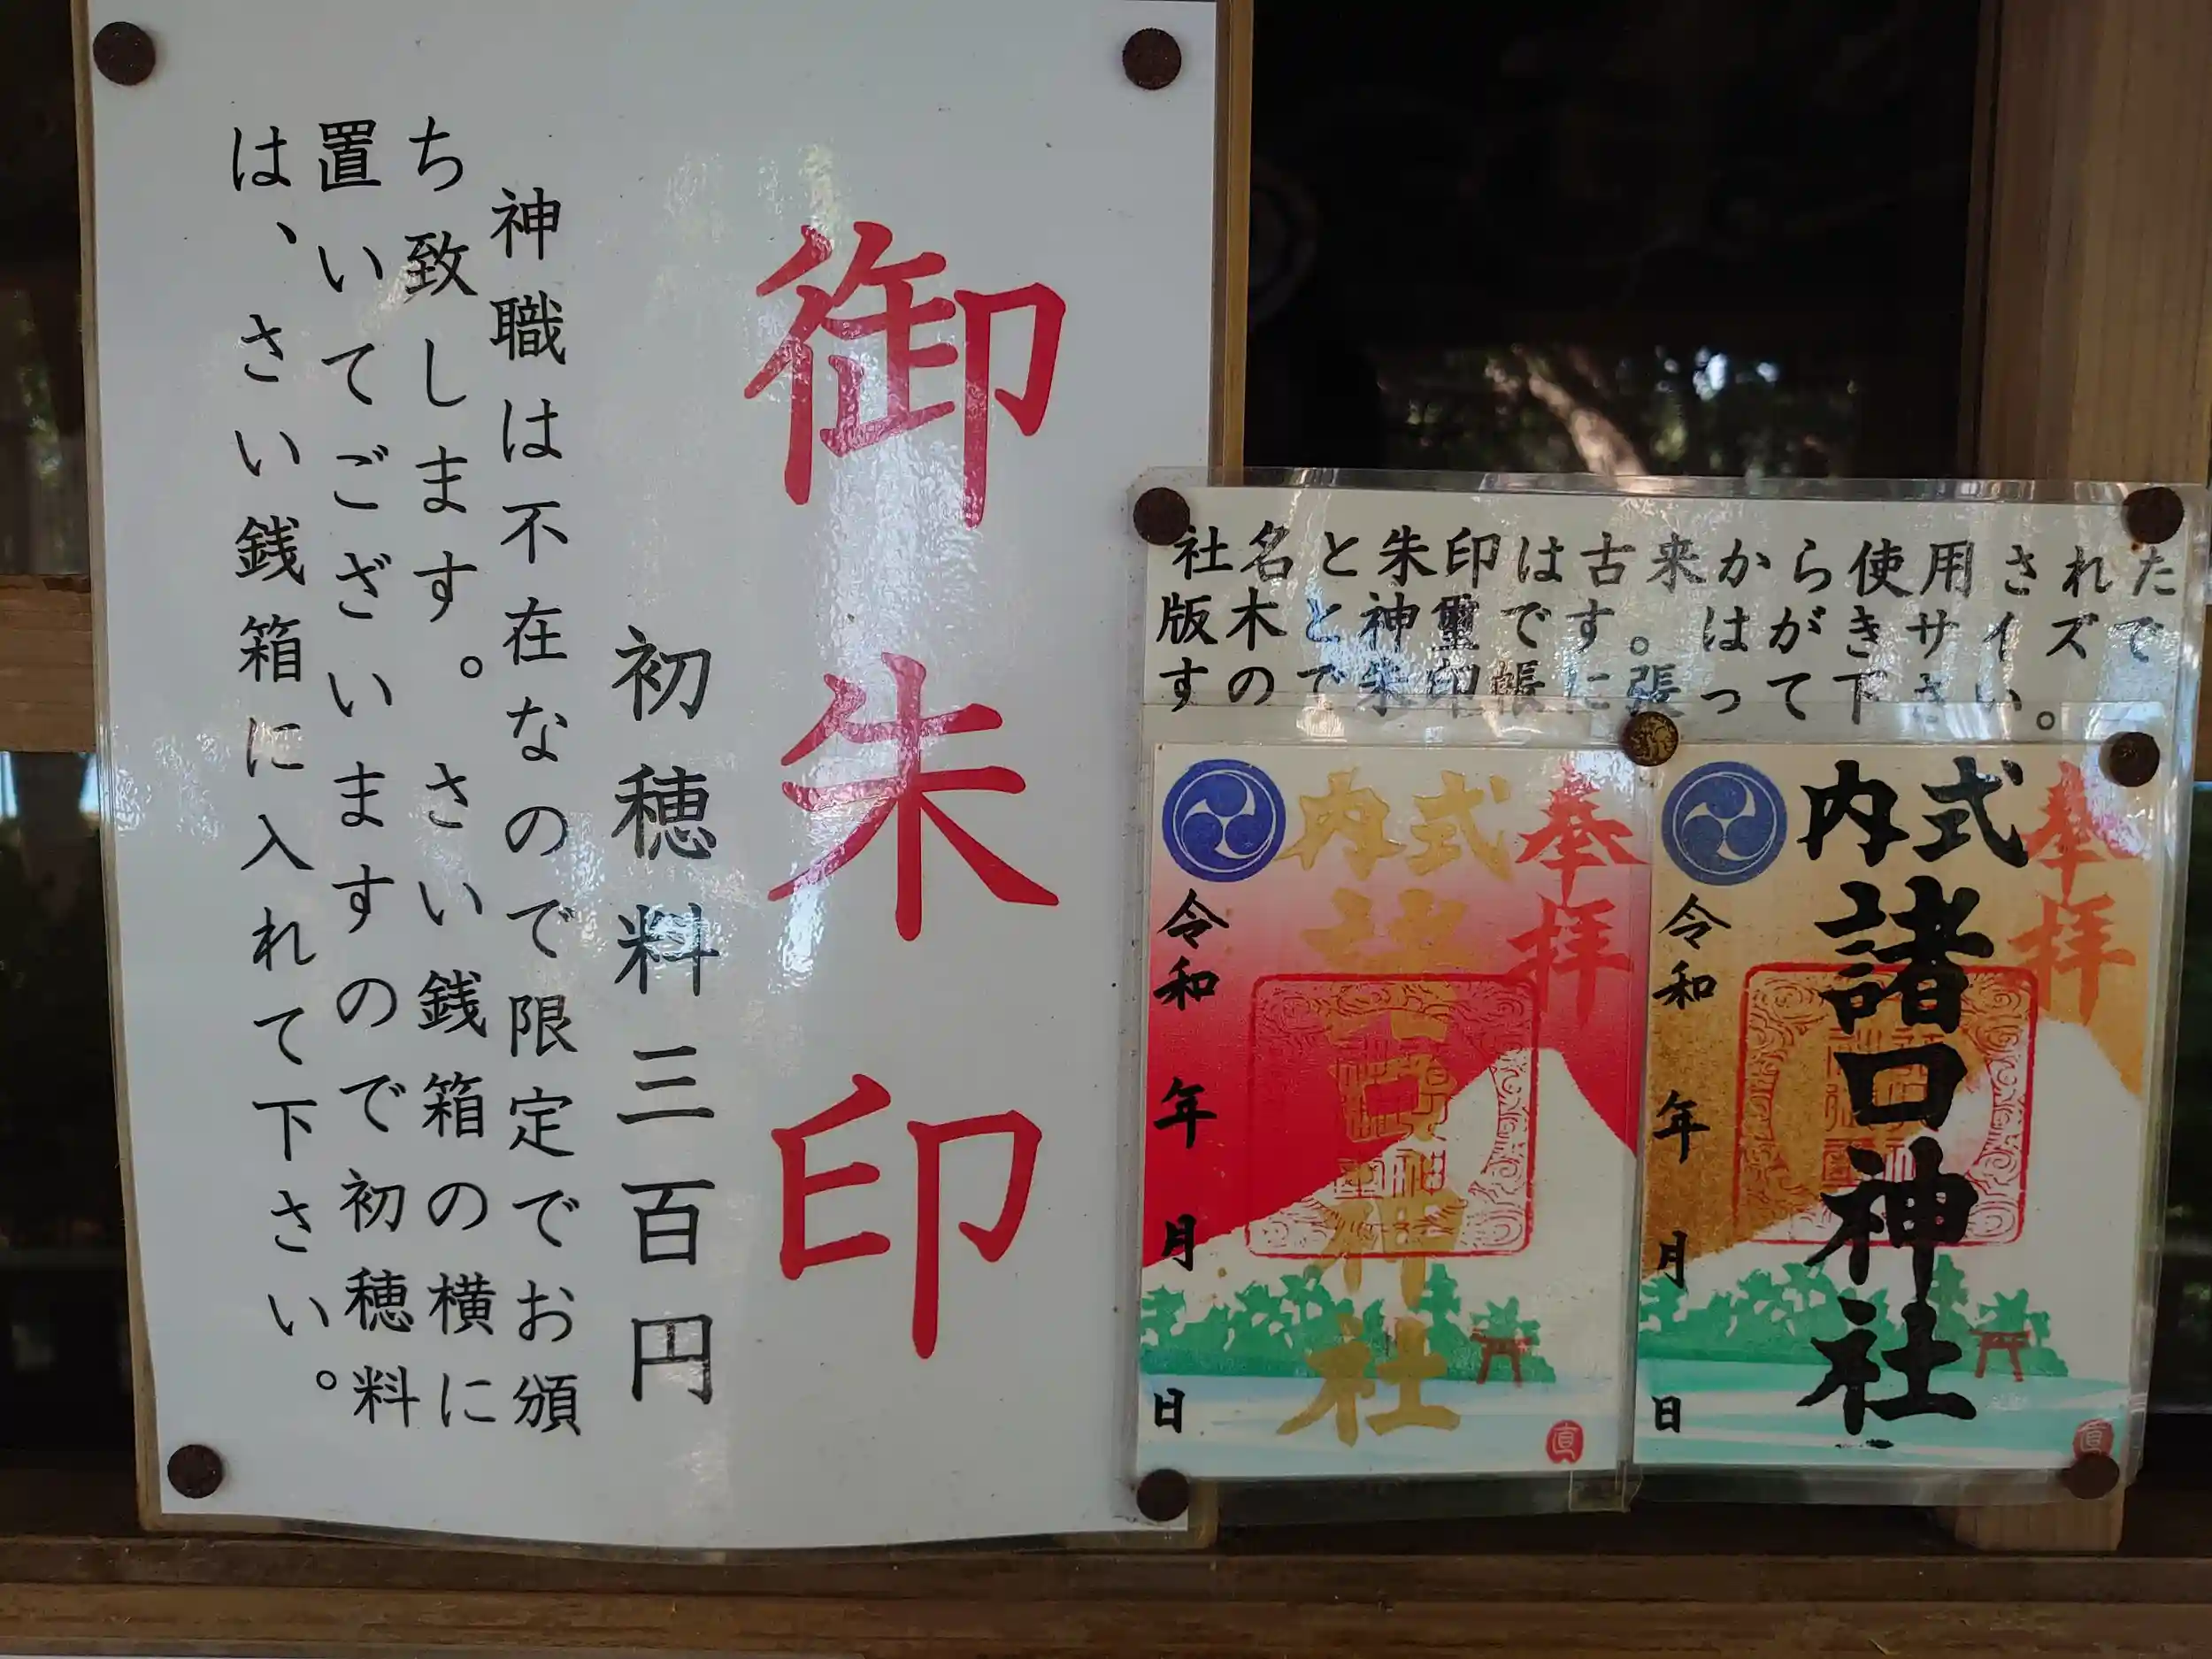 御朱印
初穂料三百円
神職は不在なので限定でお頒
ち致します。さい銭箱の横に
置いてございますので初穂料
は、さい銭箱に入れて下さい。
社名と朱印は古来から使用された
版木と神璽です。はがきサイズで
すので朱印帳に張って下さい。
奉拝
式内
諸口神社
令和
年
月
日
直
奉拝
式内
諸口神社
令和
年
月
日
直